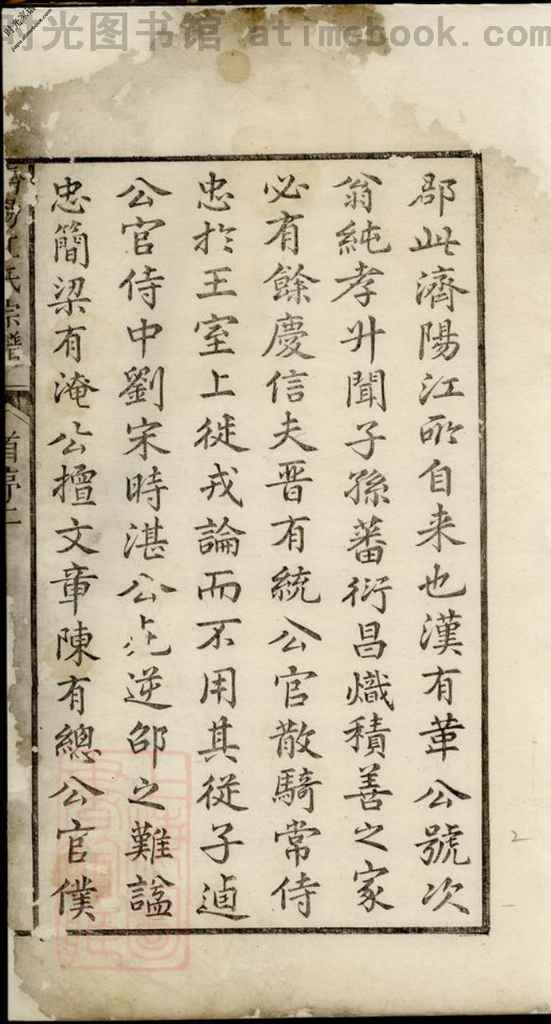 时光图书馆 atimebook.com
郡此濟陽江所自来也漢有革公號次
翁純孝升聞子孫蕃衍昌熾積善之家
必有餘慶信夫晋有統公官散騎常侍
忠於王室上徙戎論而不用其従子逌
公官侍中劉宋時湛公逆邵之難諡
忠簡梁有淹公擅文章陳有總公官僕
陽江氏宗譜
首序二
2